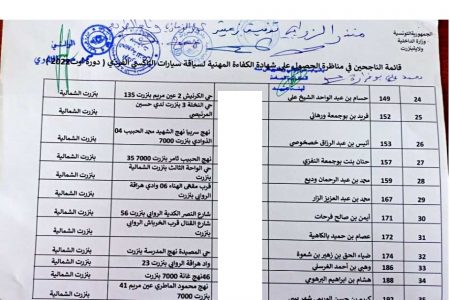 الجمهورية التونسية
وزارة الداخلية
ولاية بنزرت
الوالي
قائمة الناجحين في مناظرة الحصول على شهادة الكفاءة المهنية لسياقة سيارات التاكسي الفردي ( دورة أوت 2022 )
24 149 حسام بن عبد الواحد الشيخ علي حي الكرنيش 2 عين مريم بنزرت 135 بنزرت الشمالية
25 152 فريد بن بوجمعة ورهاني حي النخلة 3 بنزرت لدى حسين المرنيصي بنزرت الشمالية
26 153 أنيس بن عبد الرزاق خصخوصي نهج صربيا نهج الشهيد محمد الحبيب 04 الذوادي بنزرت 7000 بنزرت الشمالية
27 157 حنان بنت بوجمعة النفزي نهج الحبيب ثامر بنزرت 7000 35 بنزرت الشمالية
28 159 محمد بن عبد الرحمان وديع حي الواحة الثالث بنزرت الشمالية بنزرت بنزرت الشمالية
29 167 محمد بن عبد العزيز الزار قرب مقهى الهناء 06 وادي هراقة الروابي بنزرت بنزرت الشمالية
30 171 أيمن بن صالح فرحات شارع النصر الكدية الروابي بنزرت 56 بنزرت الشمالية
31 172 عصام بن حميد بالكاهية شارع القنال قرب الخرباش الروابي بنزرت بنزرت الشمالية
32 174 ضياء الحق بن زهير بن شعوة حي المصيدة نهج المدرسة بنزرت بنزرت الشمالية
33 186 وهبي بن أحمد الغرسلي واد هراقة الروابي بنزرت 23 بنزرت الشمالية
34 188 هشام بن ابراهيم البرهومي 46 نهج غانة بنزرت 7000 بنزرت الشمالية
نهج محمود الماطري عين مريم 41